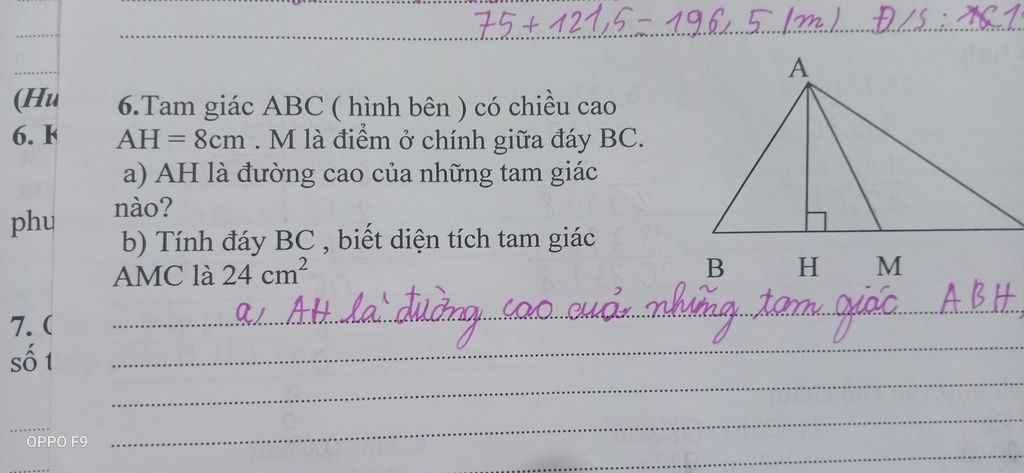 75 + 121,5 = 196,5 (m) Đ/S :
(Hu
6.Tam giác ABC ( hình bên ) có chiều cao
6. K
AH = 8cm . M là điểm ở chính giữa đáy BC.
a) AH là đường cao của những tam giác
phu
nào?
b) Tính đáy BC , biết diện tích tam giác
AMC là 24 cm²
A
B H M
a, AH là đường cao của những tam giác ABH,
7.
số t
OPPO F9